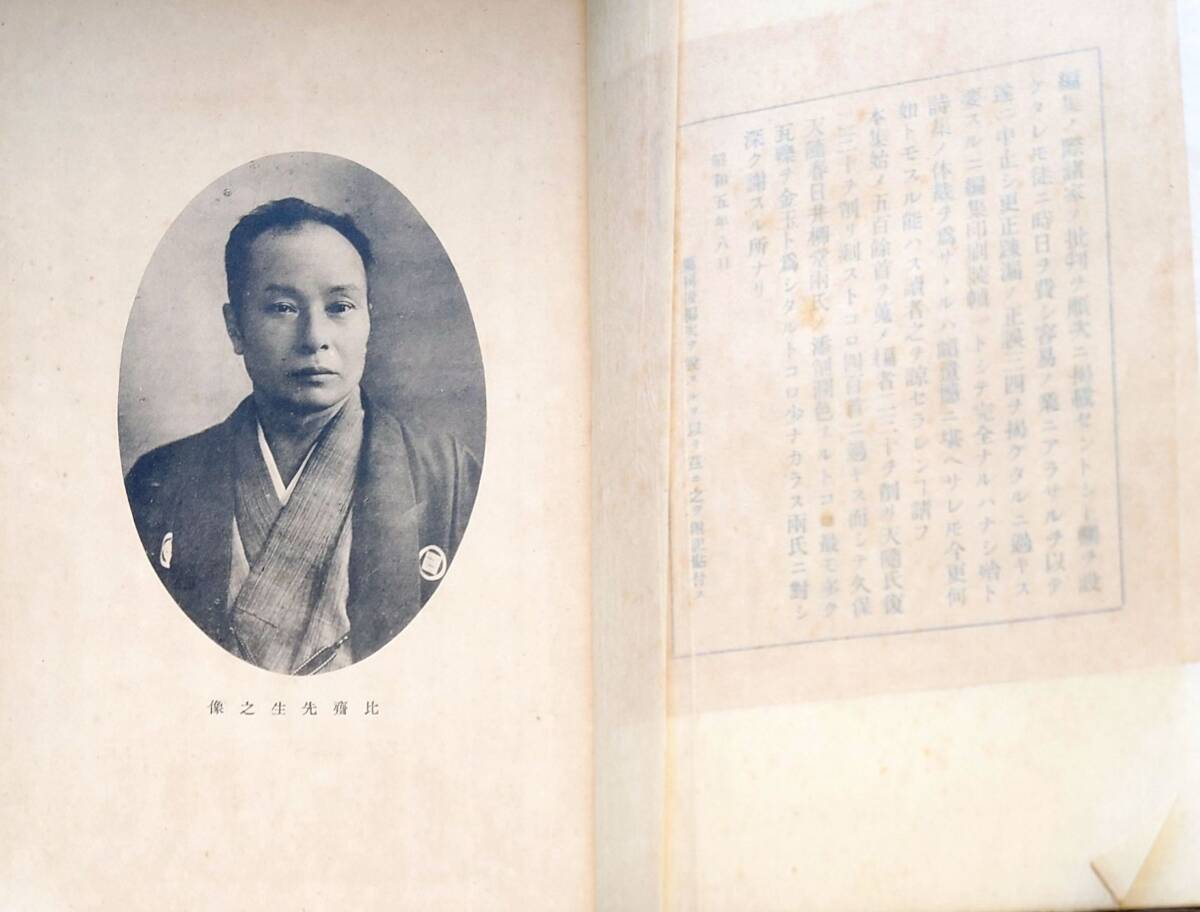 編集ノ際諸家ノ批判ヲ順次ニ掲載セントシ一欄ヲ設
ケタレモ徒ニ時日ヲ費シ容易ノ業ニアラサルヲ以テ
遂ニ中止シ更正疎漏ノ正誤三四ヲ掲ケタルニ過キス
要スルニ編集印刷装幀一トシテ完全ナルハナシ殆ト
詩集ノ体裁ヲ為サヽルハ慚ニ堪ヘサレ𪜈今更何
如トモスル能ハス読者之ヲ諒セラレンヿ請フ
本集始メ五百餘首ヲ蒐メ編者二三十ヲ削リ天隨氏復
三十ヲ削リ剰ストコロ四百首ニ過キス而シテ久保
天隨春日井柳堂両氏ノ添削潤色ルトコロ最モ多ク
瓦礫ヲ金玉ト為シタルトコロ少ナカラス両氏ニ対シ
深ク謝スル所ナリ
昭和五年六月
ヲ以テ茲ニ之ヲ貼付ス
比齋先生之像